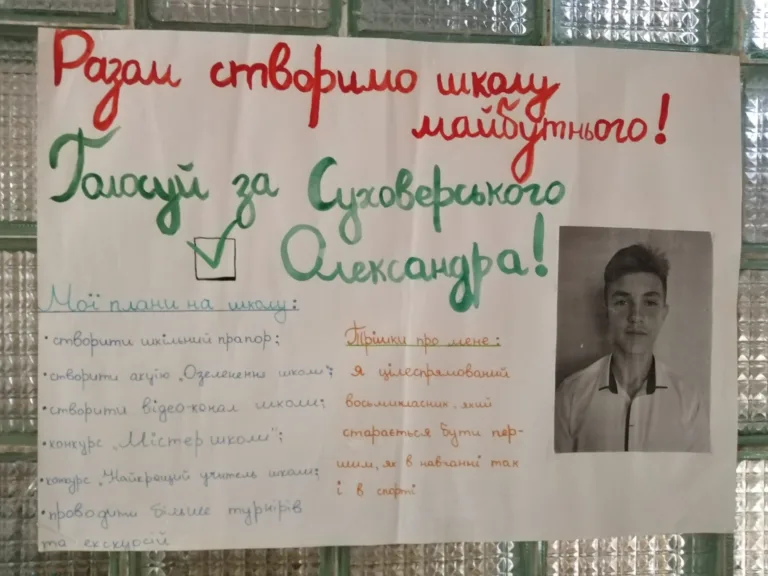 Разом створимо школу
майбутнього!
Голосуй за Суховерського
Олександра!
Мої плани на школу:
• створити шкільний прапор;
• створити акцію „Озеленення школи";
• створити відео-канал школи;
• конкурс „Містер школи";
• конкурс „Найкращий учитель школи;
• проводити більше турнірів
та екскурсій
Трішки про мене:
Я цілеспрямований
восьмикласник, який
старається бути пер-
шим, як в навчанні так
і в спорті